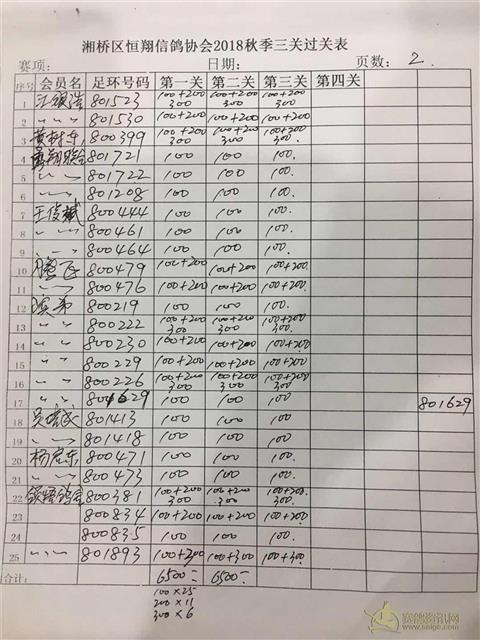 湘桥区恒翔信鸽协会2018秋季三关过关表
赛项: 日期: 页数: 2.
序号 会员名 足环号码 第一关 第二关 第三关 第四关
1 801523 100+200 300 100+200 300 100+200 300
2 〃 〃 801530 100+200 100+200 100+200
3 800399 100+200 300 100+200 300 100+200 300
4 801721 100 100 100.
5 〃 〃 801722 100 100 100.
6 〃 801208 100 100 100.
7 王俊斌 800444 100 100 100.
8 〃 〃 800461 100 100 100.
9 〃 〃 800464 100 100 100.
10 腾飞 800479 100+200 100+200 100+200.
11 〃 〃 800476 100+200 100+200 100+200
12 800219 100 100 100
13 〃 〃 800222 100+200 300 100+200 300 100+200 300
14 〃 〃 800230 100+200 100+200 100+200
15 〃 〃 800229 100+200 100+200 100+200.
16 〃 〃 800226 100+200 300 100+200 300 100+200 300
17 〃 〃 801629 100 100 100 801629
18 801413 100 100 100
19 〃 〃 801418 100 100 100.
20 杨启东 800471 100 100 100
21 〃 〃 800473 100 100 100.
22 800381 100+200 300 100+200 300 100+200. 300
23 800834 100+200 100+200 100+200
24 800835 100 100 100.
25 〃 〃 801893 100+300 100+300 100+300.
合计: 6500- 6500-
100×25
200×11
300×6
赛鸽资讯网
www.saige.com